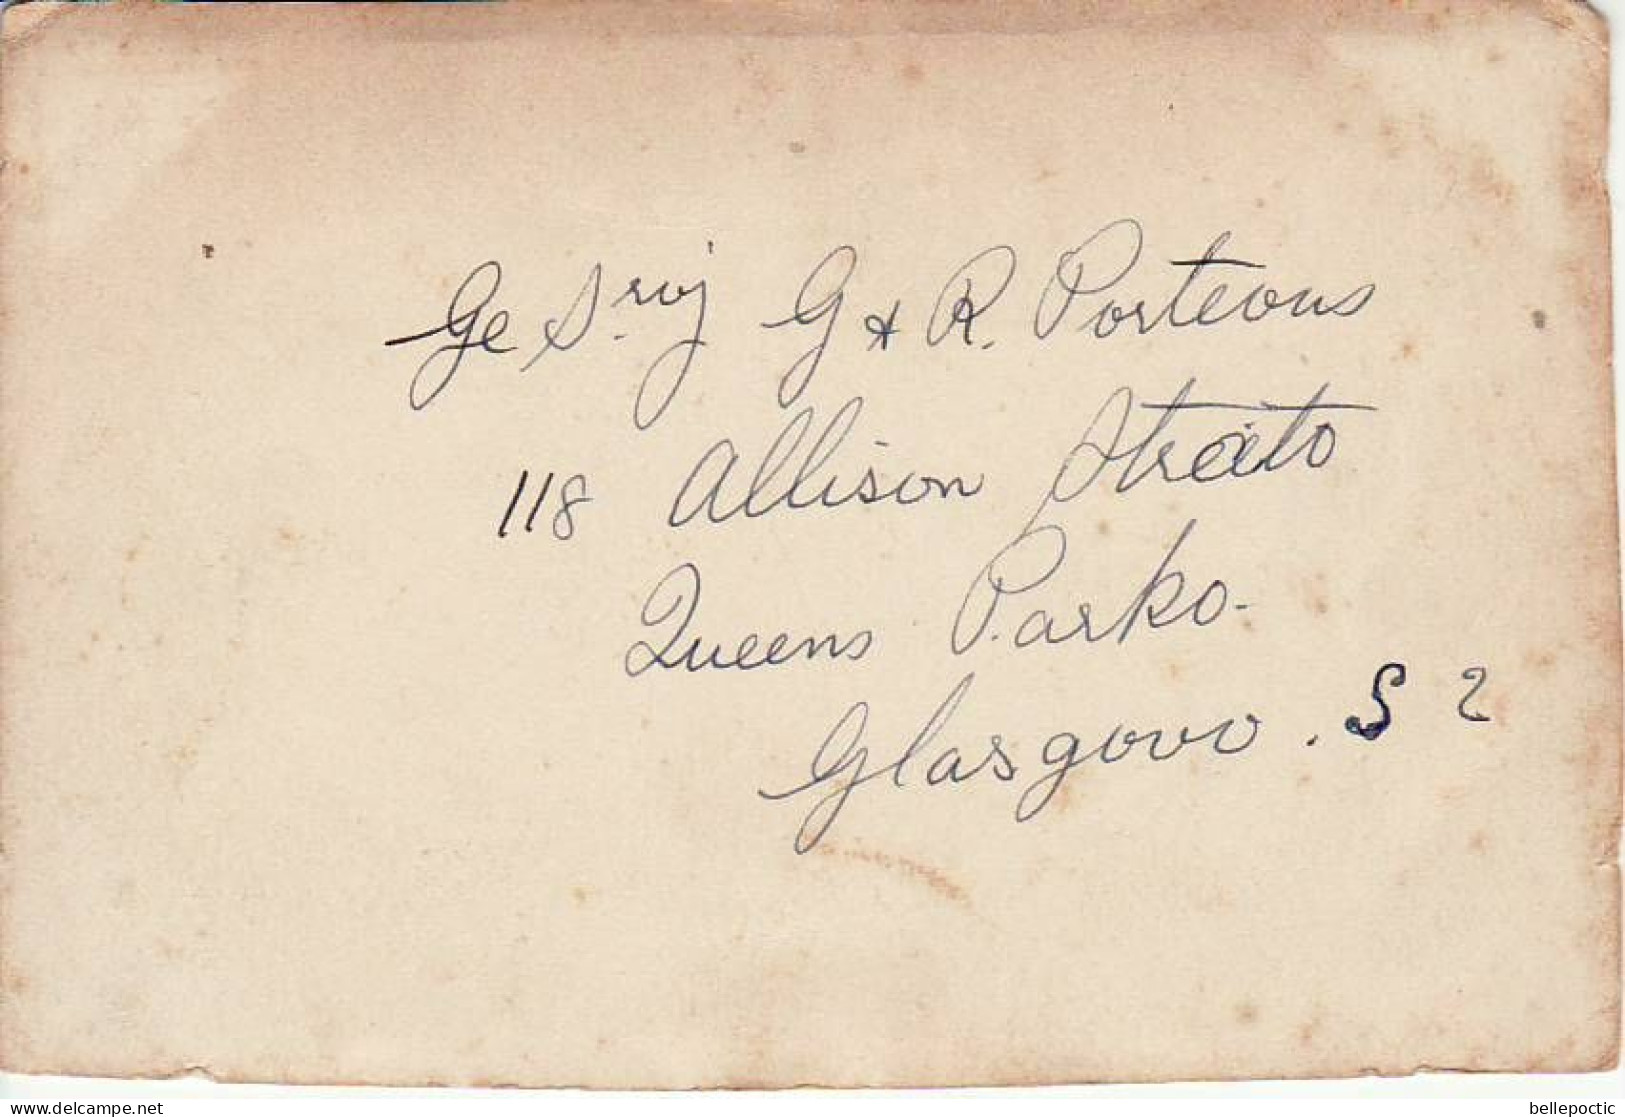 Ge S.roj G & R. Porteous
118 Allison Streito
Queens Parko.
Glasgow. S 2
delcampe.net
bellepoctic